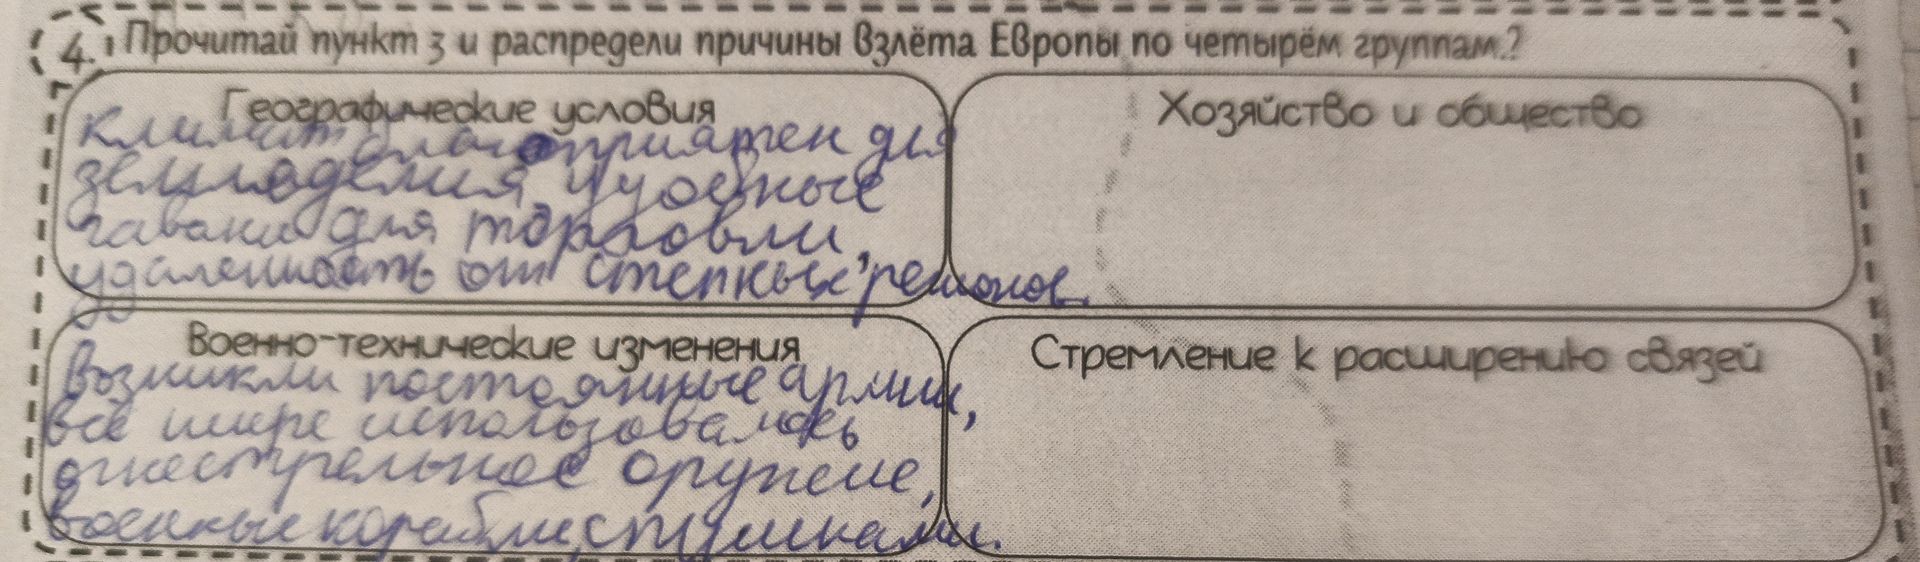 4. Прочитай пункт 3 и распредели причины взлёта Европы по четырём группам.?
Географические условия
Климат благоприятен для
земледелия и удобные
гавани для торговли,
удаленность от степных регионов.
Хозяйство и общество
Военно-технические изменения
Возникли постоянные армии,
всё шире использовалось
огнестрельное оружие,
военные корабли с пушками.
Стремление к расширению связей